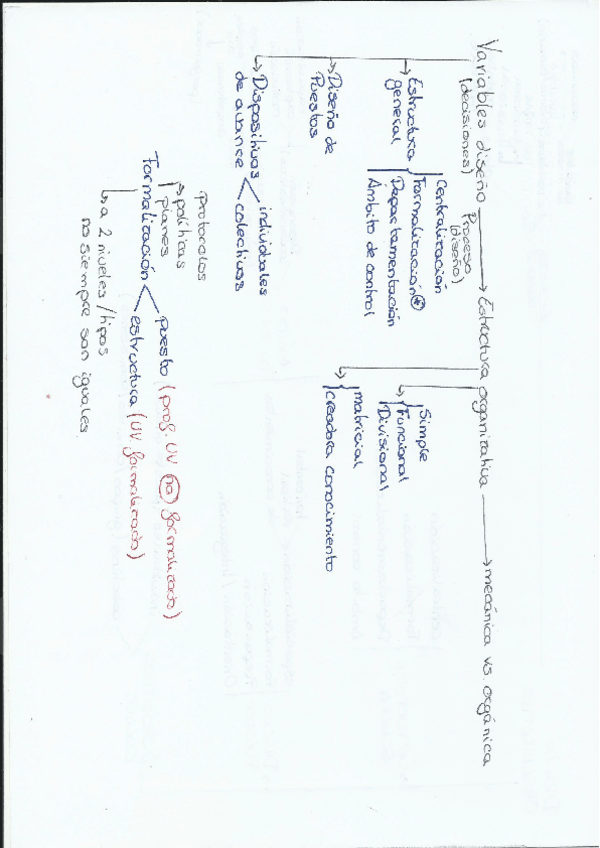 Variables diseño → Estructura organizativa → mecánica vs. orgánica
(decisiones)
Proceso
(diseño)
↳ Estructura
general
Centralización
Formalización *
Departamentación
Ámbito de control
↳ Diseño de
Puestos
↳ Dispositivos
de avance
individales
colectivos
Simple
Funcional
Divisional
matricial
creadora conocimiento
protocolos
políticas
planes
Formalización
puesto (prof. UV no formalizado)
estructura (UV formalizada)
↳ a 2 niveles/tipos
no siempre son iguales